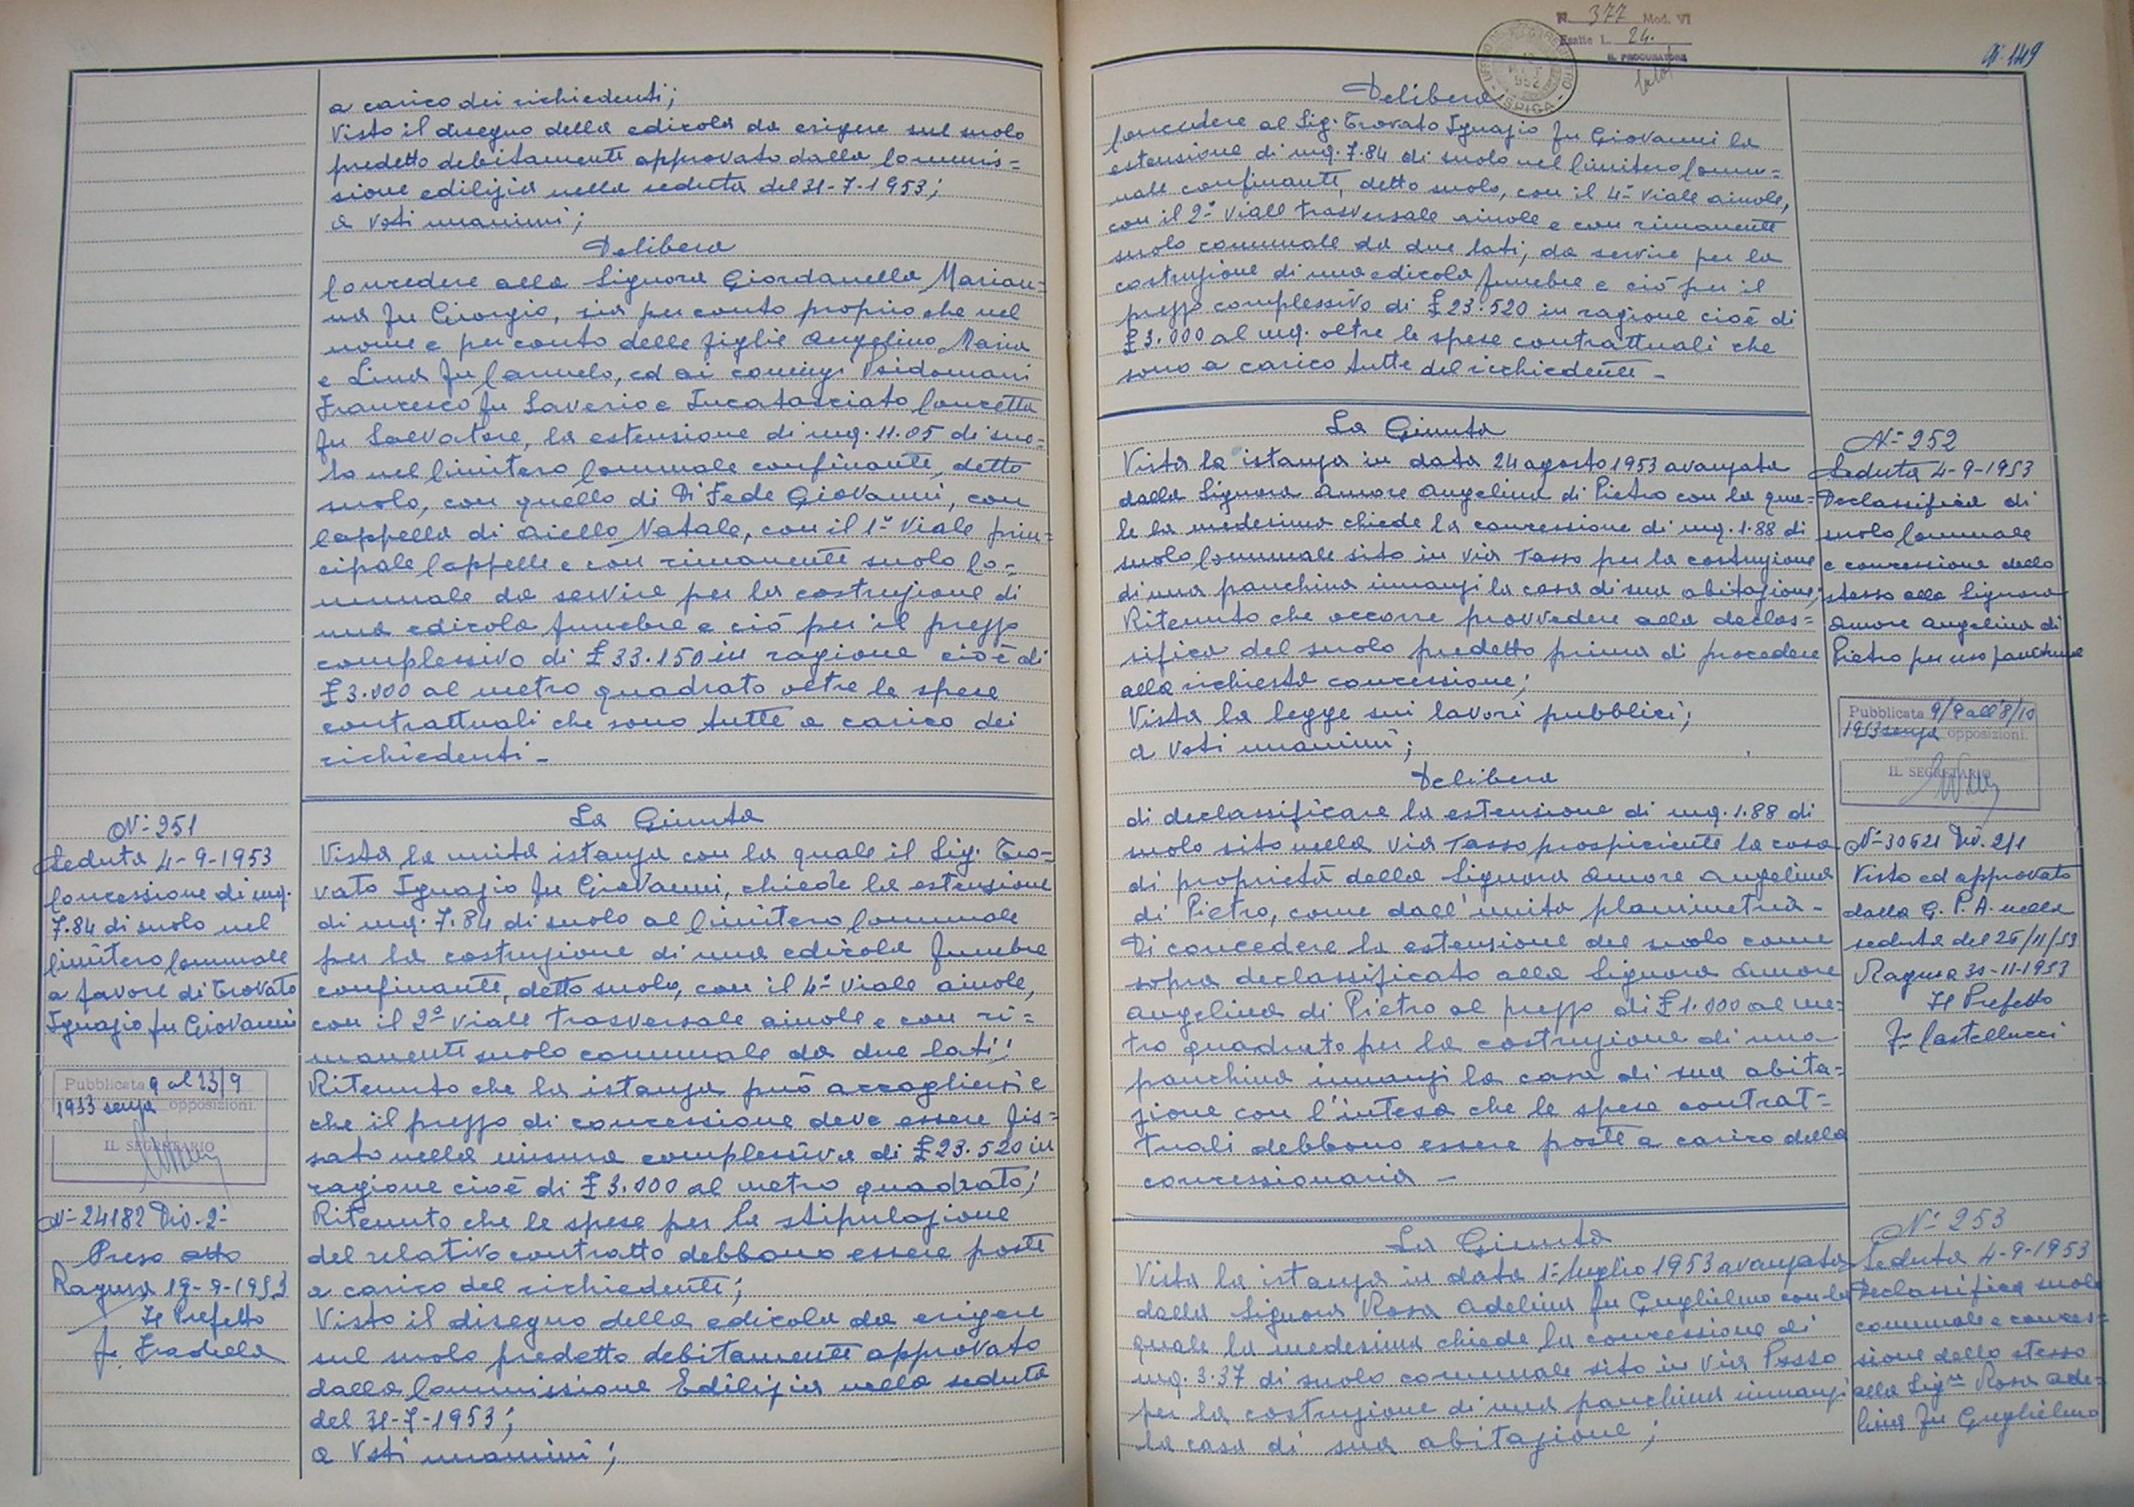 a carico dei richiedenti;
Visto il disegno della edicola da erigere sul suolo
predetto debitamente approvato dalla Commis=
sione edilizia nella seduta del 31-7-1953;
a voti unanimi;
Delibera
Concedere alla Signora Giordanella Marian=
na fu Giorgio, sia per conto proprio che nel
nome e per conto delle figlie Angelino Maria
e Lina fu Carmelo, ed ai coniugi Psidomani
Francesco fu Saverio e Iucatasciato Concetta
fu Salvatore, la estensione di mq. 11.05 di suo=
lo nel Cimitero Comunale confinante, detto
suolo, con quello di Di Fede Giovanni, con
Cappella di Aiello Natale, con il 1º Viale prin=
cipale Cappelle e con rimanente suolo Co=
munale da servire per la costruzione di
una edicola funebre e ciò per il prezzo
complessivo di £ 33.150 in ragione cioè di
£ 3.000 al metro quadrato oltre le spese
contrattuali che sono tutte a carico dei
richiedenti -
Nº 251
Seduta 4-9-1953
Concessione di mq.
7.84 di suolo nel
Cimitero Comunale
a favore di Trovato
Ignazio fu Giovanni
Pubblicata 9 al 23/9
1953 senza opposizioni.
IL SEGRETARIO
Nº 24182 Div. 2ª
Preso atto
Ragusa 19-9-1953
Il Prefetto
La Giunta
Vista la unita istanza con la quale il Sig. Tro=
vato Ignazio fu Giovanni, chiede la estensione
di mq. 7.84 di suolo al Cimitero Comunale
per la costruzione di una edicola funebre
confinante, detto suolo, con il 4º viale aiuole,
con il 2º viale trasversale aiuole e con ri=
manente suolo comunale da due lati;
Ritenuto che la istanza può accogliersi e
che il prezzo di concessione deve essere fis=
sato nella misura complessiva di £ 23.520 in
ragione cioè di £ 3.000 al metro quadrato;
Ritenuto che le spese per la stipulazione
del relativo contratto debbono essere poste
a carico del richiedente;
Visto il disegno della edicola da erigere
sul suolo predetto debitamente approvato
dalla Commissione Edilizia nella seduta
del 31-7-1953;
a Voti unanimi;
N. 377 Mod. VI
Esatte L. 24.
IL PROCURATORE
Nº 149
Delibera
Concedere al Sig. Trovato Ignazio fu Giovanni la
estensione di mq. 7.84 di suolo nel Cimitero Comu=
nale confinante, detto suolo, con il 4º viale aiuole,
con il 2º viale trasversale aiuole e con rimanente
suolo comunale da due lati, da servire per la
costruzione di una edicola funebre e ciò per il
prezzo complessivo di £ 23.520 in ragione cioè di
£ 3.000 al mq. oltre le spese contrattuali che
sono a carico tutte del richiedente -
La Giunta
Vista la istanza in data 24 agosto 1953 avanzata
dalla Signora Amore Angelina di Pietro con la qua=
le la medesima chiede la concessione di mq. 1.88 di
suolo Comunale sito in via Tasso per la costruzione
di una panchina innanzi la casa di sua abitazione;
Ritenuto che occorre provvedere alla declas=
sifica del suolo predetto prima di procedere
alla richiesta concessione;
Vista la legge sui lavori pubblici;
a Voti unanimi;
Delibera
di declassificare la estensione di mq. 1.88 di
suolo sito nella Via Tasso prospiciente la casa
di proprietà della Signora Amore Angelina
di Pietro, come dall'unita planimetria -
Di concedere la estensione del suolo come
sopra declassificato alla Signora Amore
Angelina di Pietro al prezzo di £ 1.000 al me=
tro quadrato per la costruzione di una
panchina innanzi la casa di sua abita=
zione con l'intesa che le spese contrat=
tuali debbono essere poste a carico della
concessionaria -
Nº 252
Seduta 4-9-1953
Declassifica di
suolo Comunale
e concessione dello
stesso alla Signora
Amore Angelina di
Pietro per uso panchina
Pubblicata 9/9 all'8/10
1953 senza opposizioni.
IL SEGRETARIO
Nº 30621 Div. 2/1
Visto ed approvato
dalla G. P. A. nella
seduta del 26/11/53
Ragusa 30-11-1953
Il Prefetto
Fº Castellucci
La Giunta
Vista la istanza in data 1º luglio 1953 avanzata
dalla Signora Rosa Adelina fu Guglielmo con la
quale la medesima chiede la concessione di
mq. 3.37 di suolo comunale sito in via
per la costruzione di una panchina innanzi
la casa di sua abitazione;
Nº 253
Seduta 4-9-1953
Declassifica suolo
comunale e conces=
sione dello stesso
alla Sigra Rosa Ade=
lina fu Guglielmo